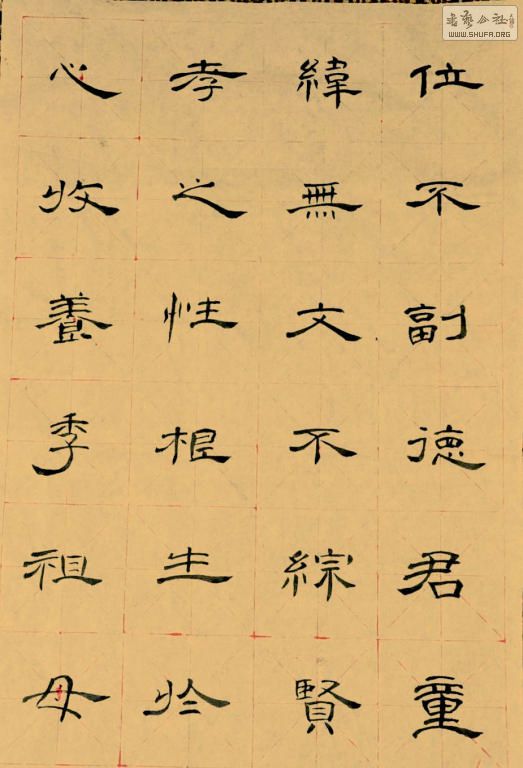 位不副德君童
緯無文不綜賢
孝之性根生於
心收養季祖母
書藝公社
WWW.SHUFA.ORG